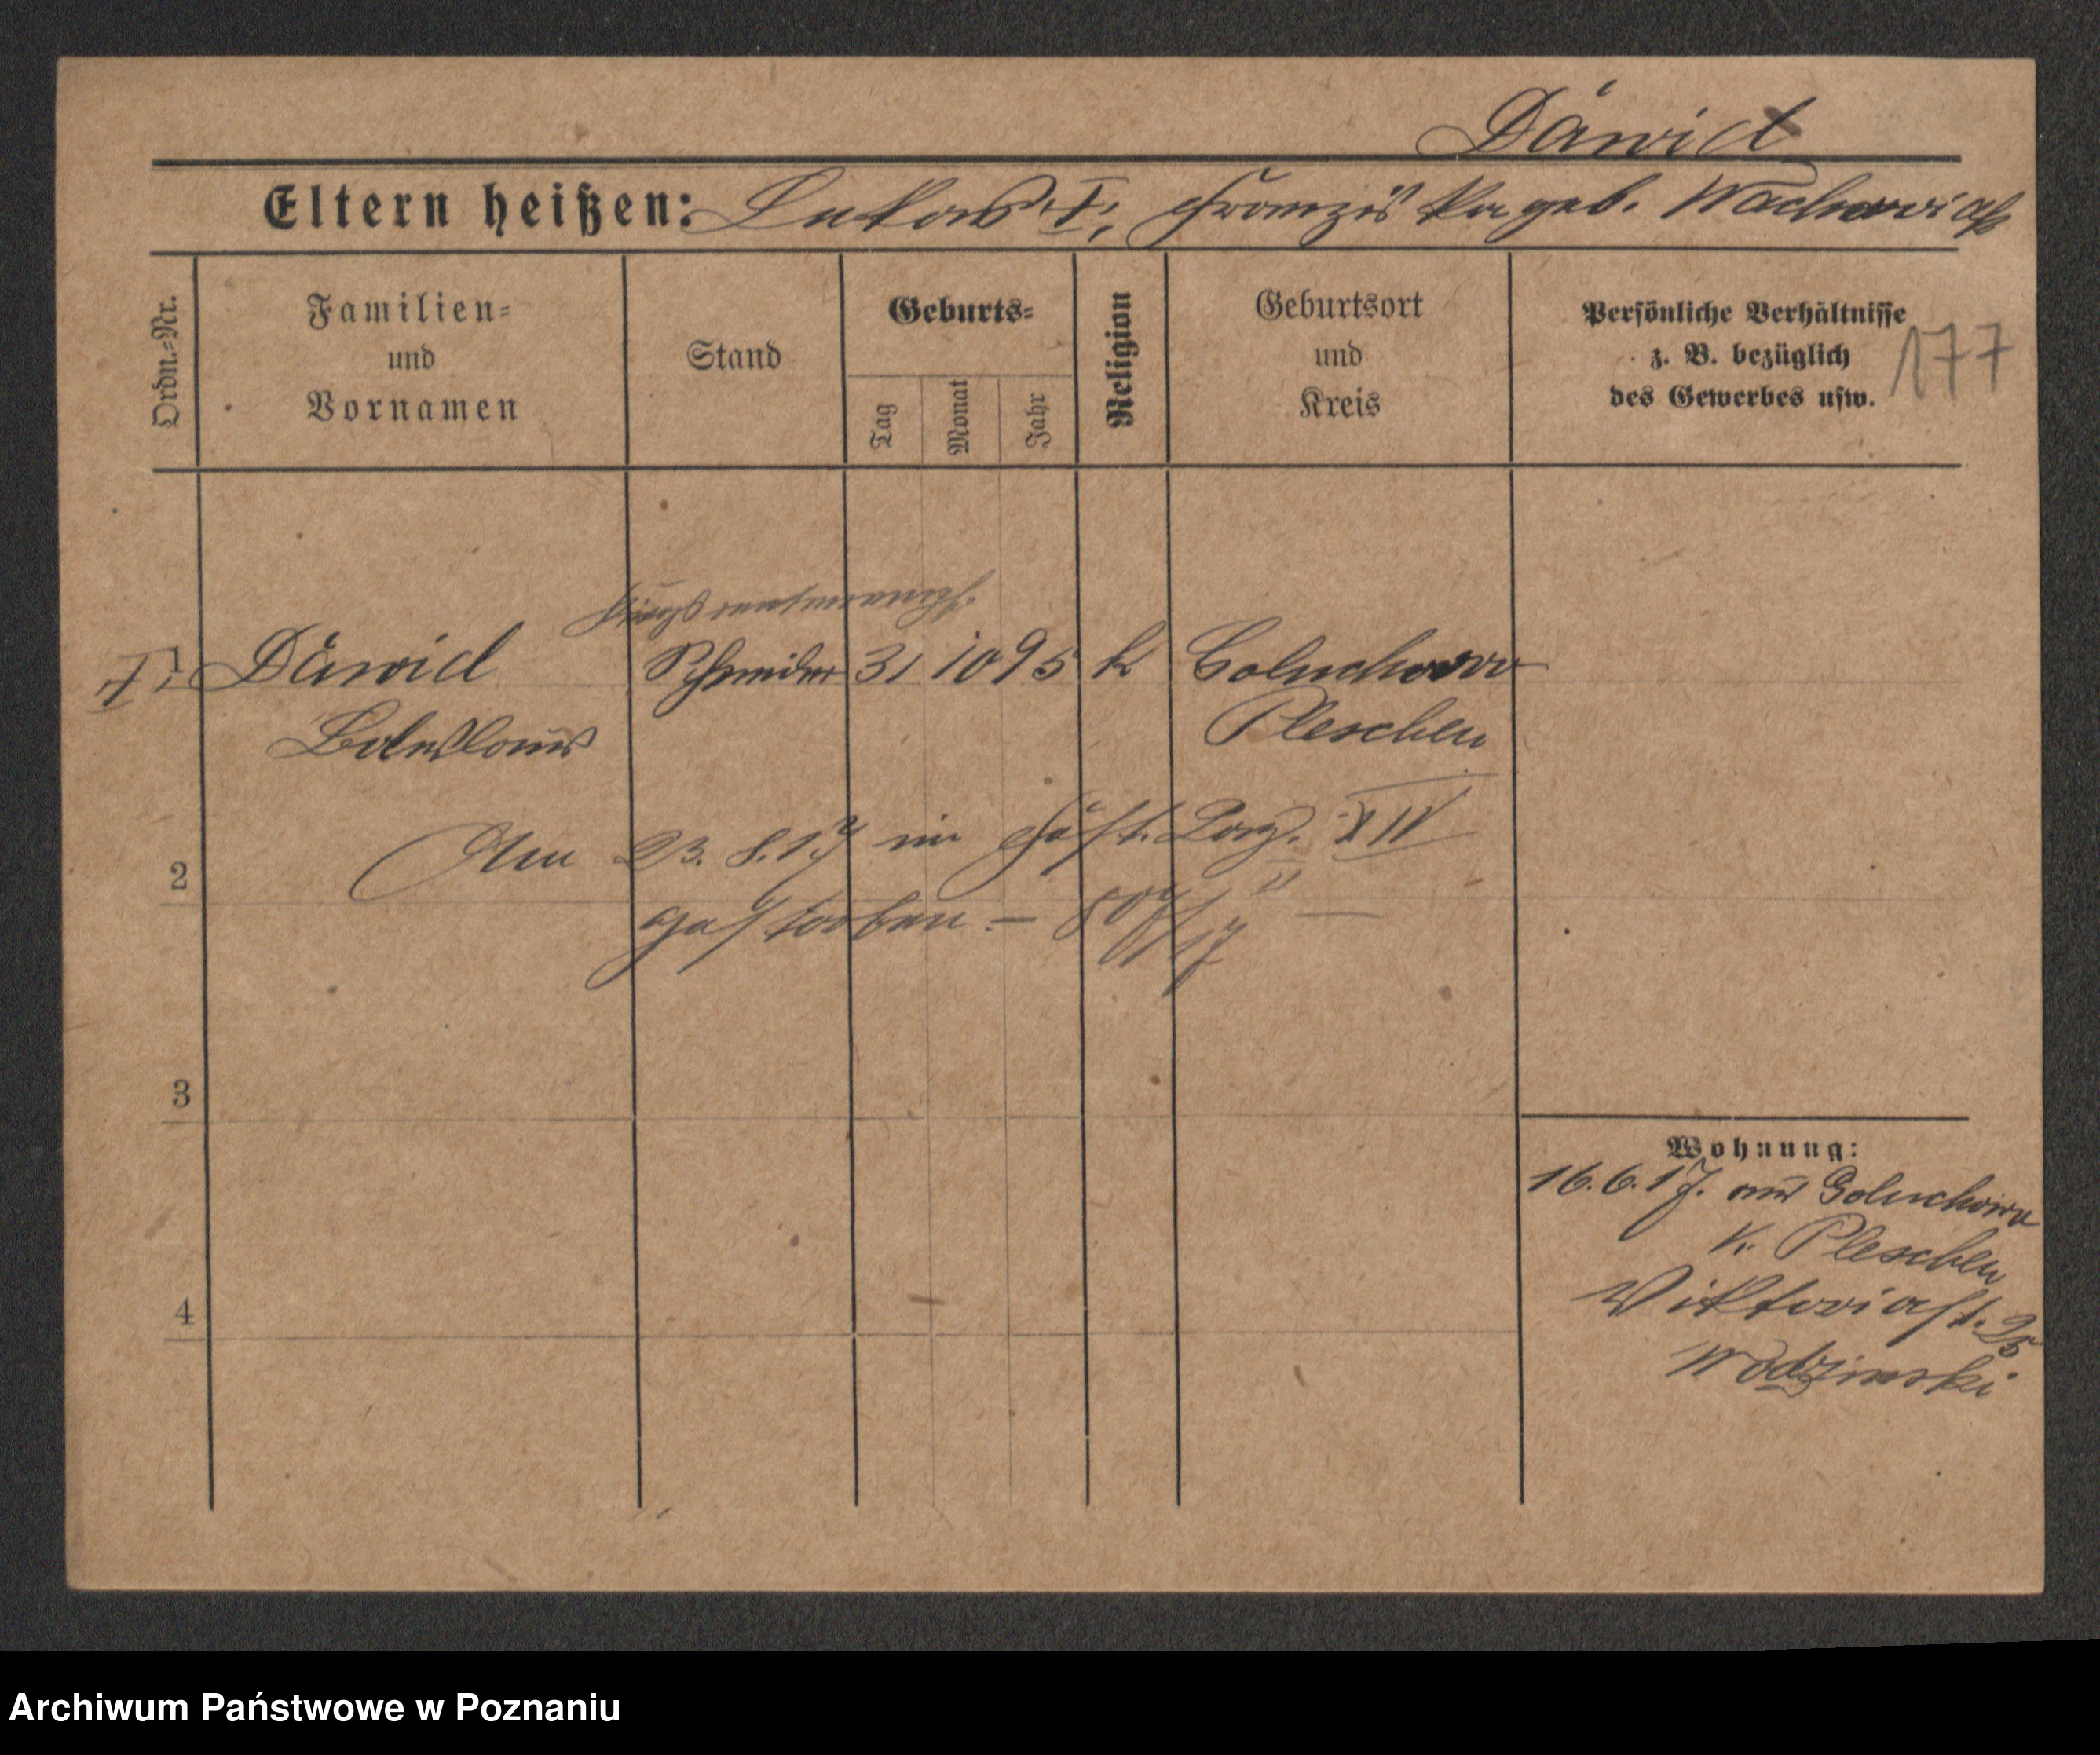 Dawid
Eltern heißen: Lukas †, Franziska geb. Wachowiak
Ordn.-Nr.
Familien-
und
Vornamen
Stand
Geburts-
Tag
Monat
Jahr
Religion
Geburtsort
und
Kreis
Persönliche Verhältnisse
z. B. bezüglich
des Gewerbes usw.
177
Dawid Schneider 31 10 95 k Goluchow
Boleslaus Pleschen
Am 23. 8. 17 im Fest. Laz. XIV
2
gestorben. — 807/17 II —
3
4
Wohnung:
16. 6. 17. aus Goluchow
K. Pleschen
Viktoriast. 25
Wodzinski
Archiwum Państwowe w Poznaniu